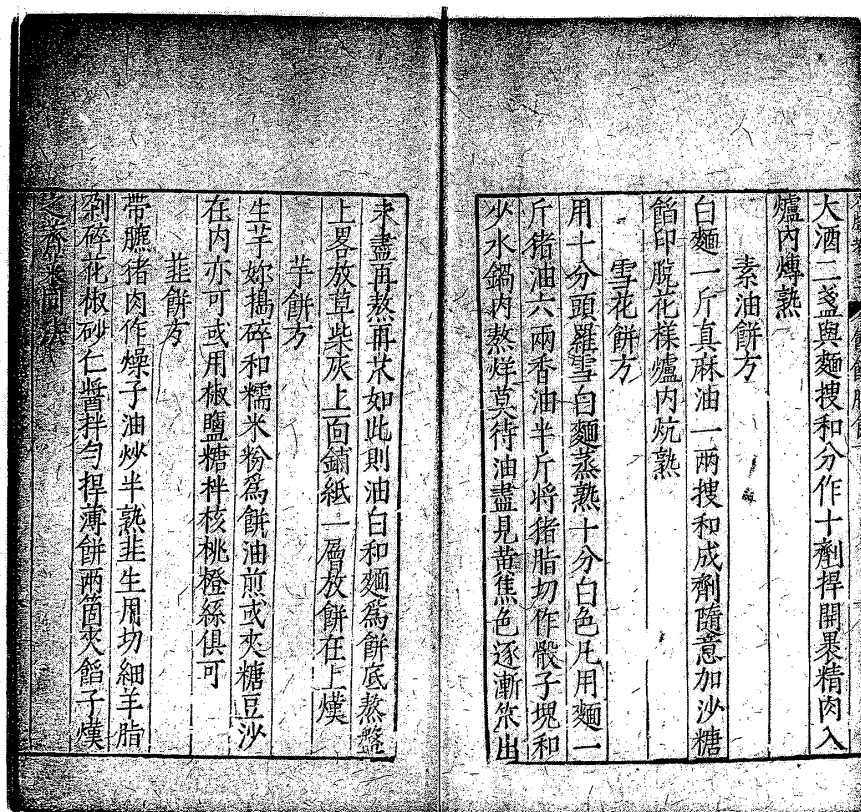 大酒二盞與麵搜和分作十劑捍開裹精肉入
爐內煿熟
素油餅方
白麵一斤真麻油一兩搜和成劑隨意加沙糖
餡印脫花樣爐內炕熟
雪花餅方
用十分頭羅雪白麵蒸熟十分白色凡用麵一
斤猪油六兩香油半斤將猪脂切作骰子塊和
少水鍋內熬烊莫待油盡見黄焦色逐漸笊出
未盡再熬再笊如此則油白和麵爲餅底熬盤
上畧放草柴灰上面鋪紙一層放餅在上熯
芋餅方
生芋妳搗碎和糯米粉爲餅油煎或夾糖豆沙
在內亦可或用椒鹽糖拌核桃橙絲俱可
韮餅方
帶膘猪肉作燥子油炒半熟韮生用切細羊脂
剁碎花椒砂仁醬拌勻捍薄餅兩箇夾餡子熯